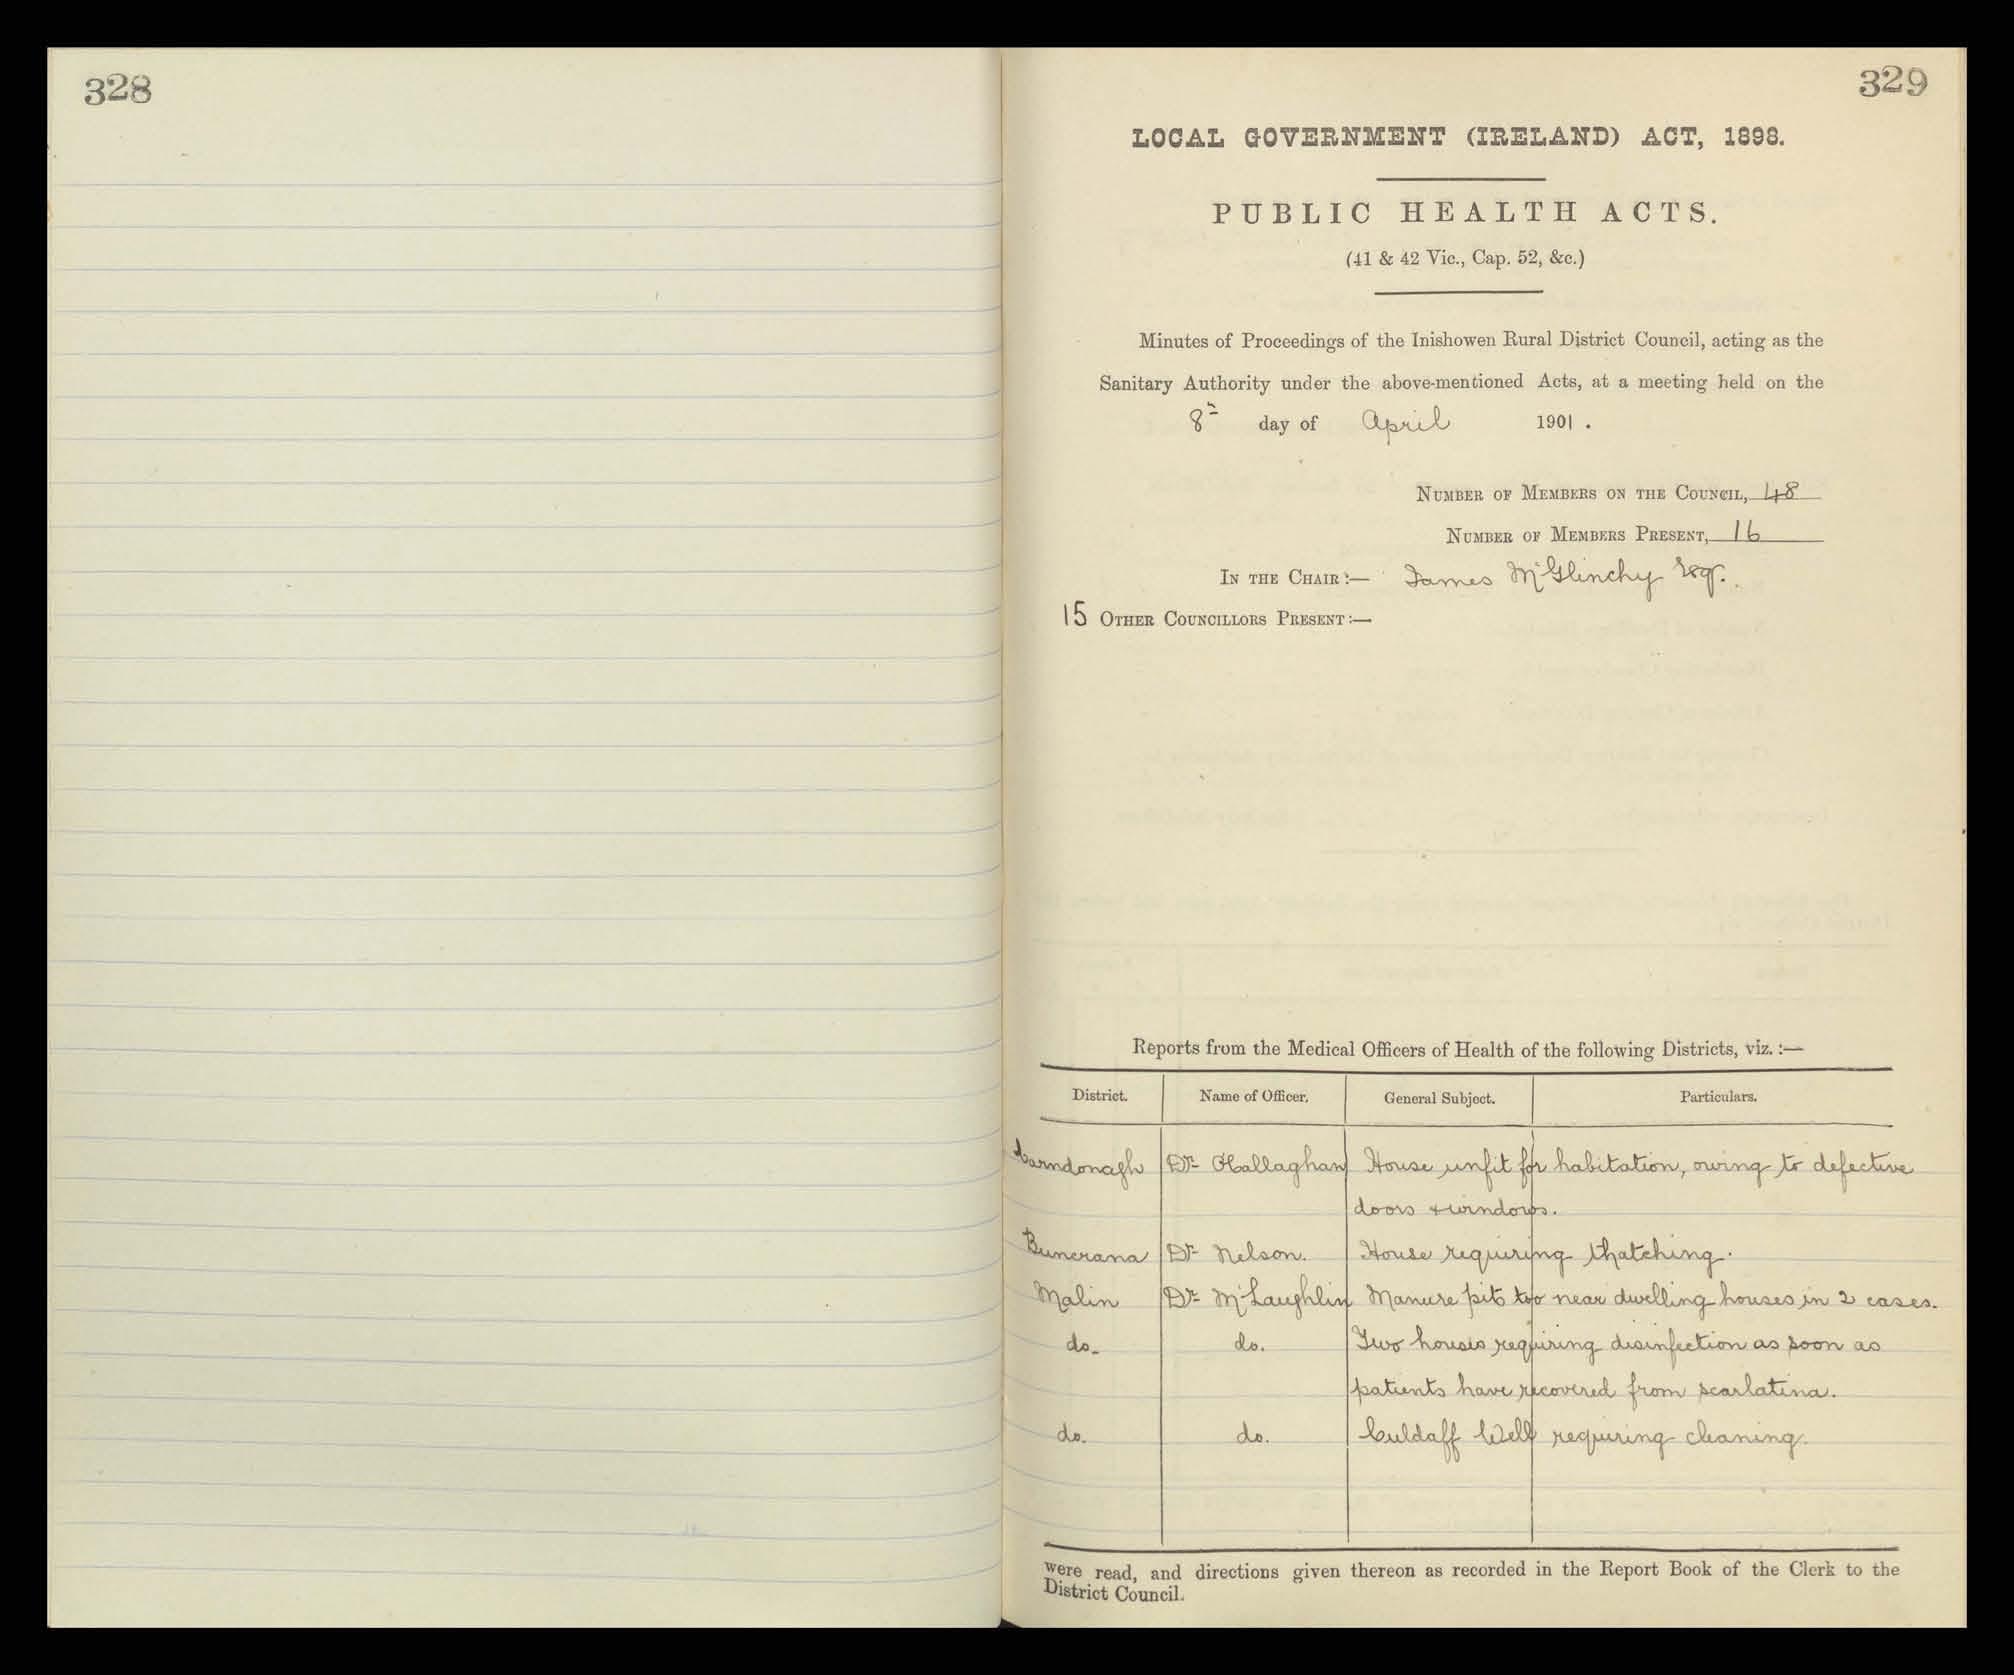 328
329
LOCAL GOVERNMENT (IRELAND) ACT, 1898.
PUBLIC HEALTH ACTS.
(41 & 42 Vic., Cap. 52, &c.)
Minutes of Proceedings of the Inishowen Rural District Council, acting as the
Sanitary Authority under the above-mentioned Acts, at a meeting held on the
8th day of April 1901.
NUMBER OF MEMBERS ON THE COUNCIL, 48
NUMBER OF MEMBERS PRESENT, 16
IN THE CHAIR:— James McGlinchy Esq.
15 OTHER COUNCILLORS PRESENT:—
Reports from the Medical Officers of Health of the following Districts, viz.:—
District. Name of Officer. General Subject. Particulars.
Carndonagh Dr OCallaghan House unfit for habitation, owing to defective
doors & windows.
Buncrana Dr Nelson. House requiring thatching.
Malin Dr McLaughlin Manure pit too near dwelling houses in 2 cases.
do. do. Two houses requiring disinfection as soon as
patients have recovered from scarlatina.
do. do. Culdaff Well requiring cleaning.
were read, and directions given thereon as recorded in the Report Book of the Clerk to the
District Council.